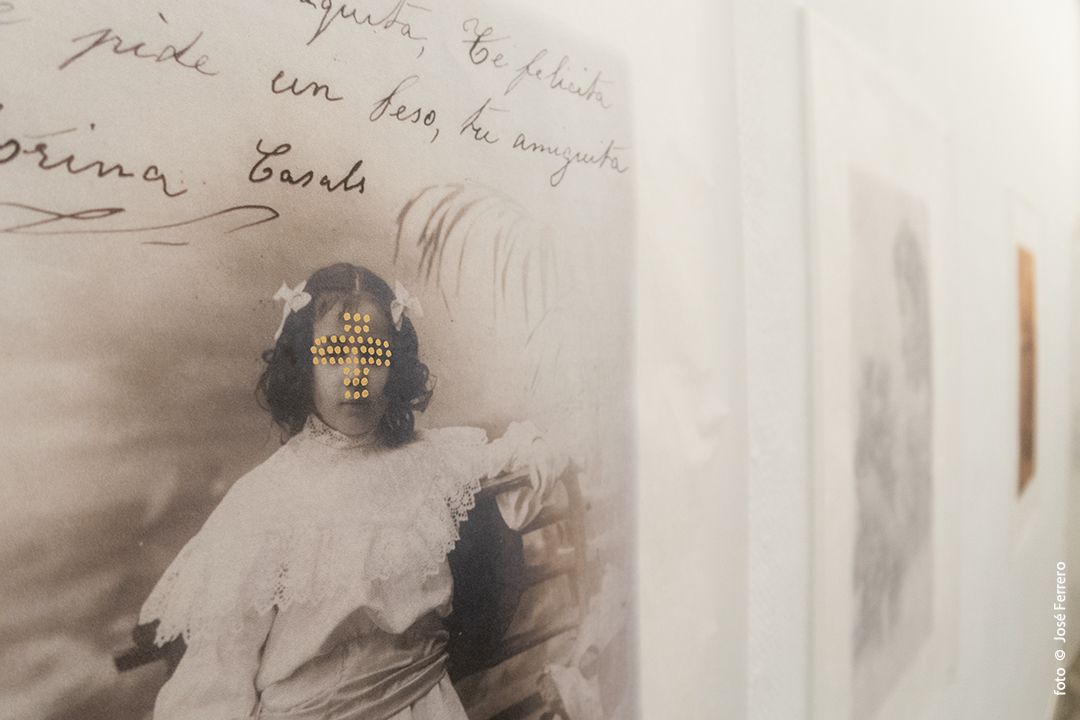 Te felicita
pide un beso, tu amiguita
Casals
foto © José Ferrero